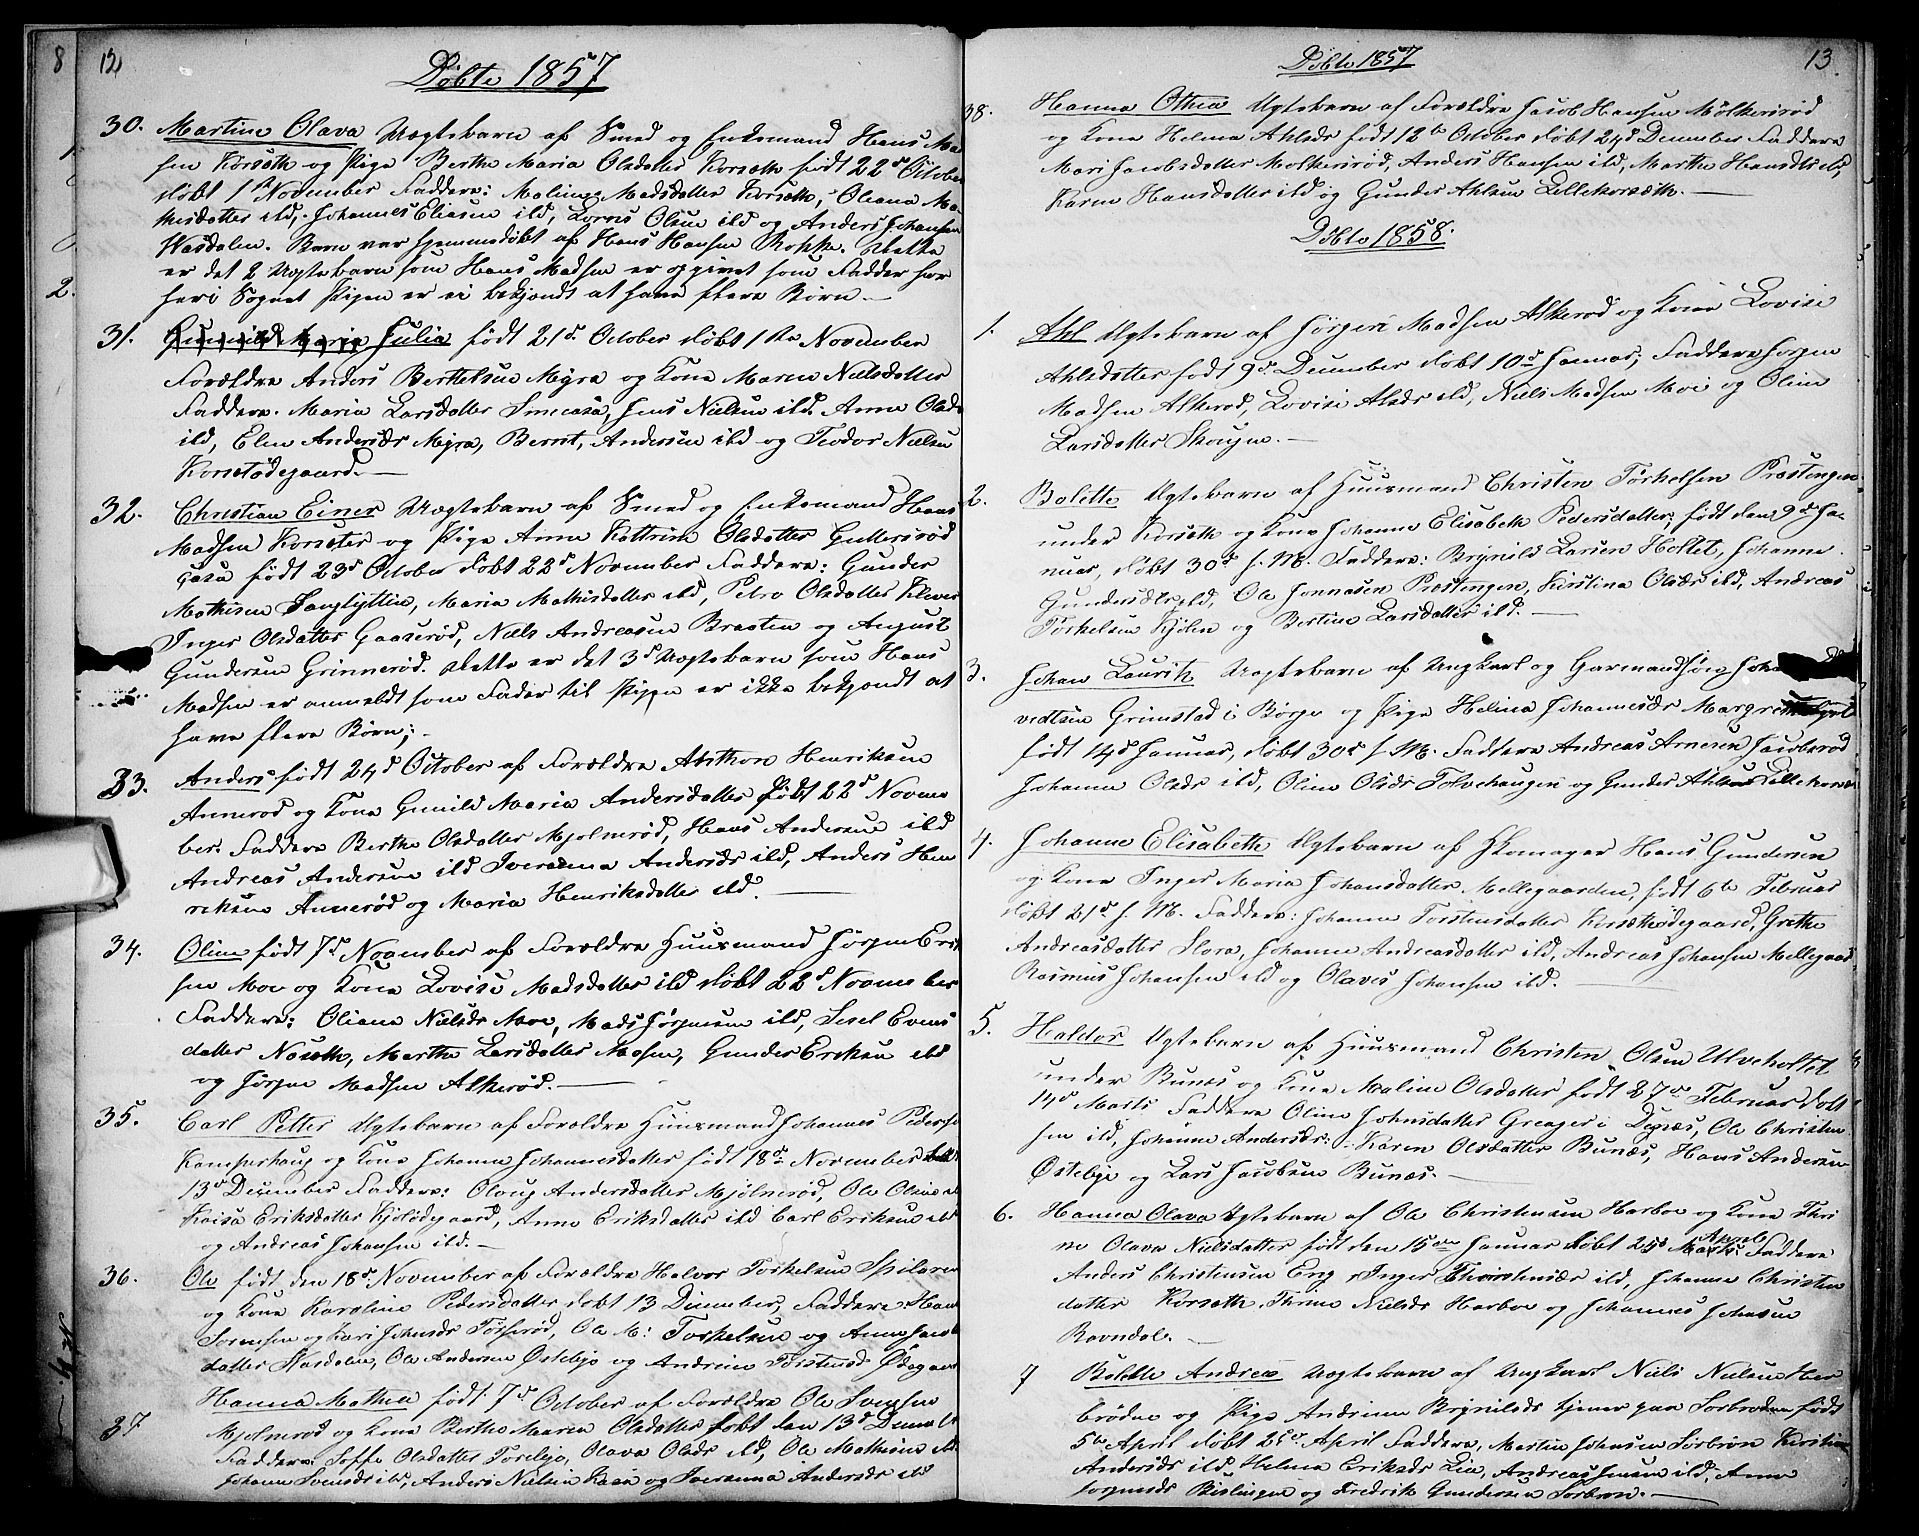 8 12
Døbte 1857
30. Martine Olava Uægtebarn af Smed og Enkemand Hans Mad-
sen Korsæth og Pige Berthe Maria Olsdatter Korsæth født 22de October
døbt 1ste November Faddere: Maline Madsdatter Korsæth, Oleana Ma-
thisdatter ibd, Johannes Eliasen ibd, Lorns Olsen ibd og Anders Johansen
Wasdalen. Barn var hjemmedøbt af Hans Hansen Rokke. Dette
er det 2 Uægtebarn som Hans Madsen er opgivet som Fadder for
her i Sognet Pigen er ei bekjendt at have flere Børn —
2.
31. Gunnild Maria Julia født 21de October døbt 1ste November
Forældre Anders Berthelsen Myra og Kone Maren Nielsdatter
Faddere. Maria Larsdatter Smedasa, Jens Nielsen ibd. Anne Olsdr
ibd, Elen Andersdr Myra, Bernt, Andersen ibd og Teodor Nielsen
Korsetødegaard. —
32. Christian Einer Uægtebarn af Smed og Enkemand Hans
Madsen Korsæter og Pige Anne Kattrine Olsdatter Gutterisrød
født 23de October døbt 22de November Faddere: Gunder
Mathisen Langlyttin, Maria Mathisdatter ibd, Petra Olsdatter
Inger Olsdatter Gaaserød, Niels Andreasen Braaten og August
Gundersen Grinnerød. Dette er det 3de Uægtebarn som Hans
Madsen er anmeldt som Fader til Pigen er ikke bekjendt at
have flere Børn;
33. Anders født 24de October af Forældre Anthon Henriksen
Annerød og Kone Gunild Maria Andersdatter døbt 22de Novem
ber. Faddere Berthe Olsdatter Mjølnerød, Hans Andersen ibd
Andreas Andersen ibd Iveranna Andersdr ibd, Anders Hen
riksen Annerød og Maria Henriksdatter ibd. —
34. Oline født 7de November af Forældre Huusmand Jørgen Erik
sen Moe og Kone Lovise Madsdatter ibd døbt 22de November
Faddere: Oliana Nielsdr Moe, Mads Jørgensen ibd, Sesel Evens
datter Naseth, Marthe Larsdatter Mosen, Gunder Eriksen ibd
og Jørgen Madsen Alkerød. —
35. Carl Petter Ægtebarn af Forældre Huusmand Johannes Pederse
Kamperhaug og Kone Johanne Johannesdatter født 18de November døbt
13de December Faddere: Olaug Andersdatter Mjølnerød, Ole Olsen ibd
Kaisa Eriksdatter Kjølødegaard, Anne Eriksdatter ibd Carl Eriksen ibd
og Andreas Johansen ibd. —
36. Ole født den 18de November af Forældre Halvor Torkelsen Spileren
og Kone Karoline Pedersdatter døbt 13 December, Faddere: Hans
Sørensen og Kari Johnsdr Torserød, Ole M: Torkelsen og Anne Jacob
datter Wasdalen, Ole Andersen Østebjø og Andrine Torstensdr Ødegaard
37 Hanna Mathea født 7de October af Forældre Ole Svensen
Mjølnerød og Kone Berthe Maren Olsdatter døbt den 13de Decembr
Faddere: Soffe Olsdatter Torsebjo, Olava Olsdr ibd, Ole Mathisen ibd
Johanne Svensdr ibd, Anders Nielsen Kaen og Iveranna Andersdr ibd
Døbte 1857 13.
38. Hanna Othea Ægtebarn af Forældre Jacob Hansen Mølkerisrød
og Kone Helena Ahlsdr født 12te October døbt 24de December Faddere
Mari Jacobsdatter Molkerisrød, Anders Hansen ibd, Marthe Hansdtr ibd,
Karen Hansdatter ibd og Gunder Ahlsen Lillekorsæth. —
Døbte 1858.
1. Ahl Ægtebarn af Jørgen Madsen Alkerød og Kone Lovise
Ahlsdatter født 9de December døbt 10de Januar, Faddere Jørgen
Madsen Alkerød, Lovise Alsdr ibd, Niels Madsen Moe og Oline
Larsdatter Skougen. —
2. Bolette Ægtebarn af Huusmand Christen Torkelsen Præstengen
under Korsæth og Kone Johanne Elisabeth Pedersdatter, født den 9de Ja-
nuar, døbt 30de s. M. Faddere: Brynild Larsen Holtet, Johanne
Gundersdtr ibd, Ole Jonnasen Præstengen, Kirstina Olsdr ibd, Andreas
Torkelsen Kjølen og Bertine Larsdatter ibd. —
3. Johan Lauritz Uægtebarn af Ungkarl og Garmandssøn Johan
vedtsen Grimstad i Borge og Pige Helina Johannesdr Margret
født 14de Januar, døbt 30de s. M. Faddere Andreas Arnesen Jacobsrød
Johanne Olsdr ibd, Oline Olsdr Tolvehaugen og Gunder Ahlsen Lillekorsæ
4. Johanne Elisabethe Ægtebarn af Skomager Hans Gundersen
og Kone Inger Maria Johansdatter Mellegaarden, født 6te Februar
døbt 21de s. M. Faddere: Johanne Torstensdatter Korsethødegaard, Grethe
Andreasdatter Flora, Johanne Andreasdatter ibd, Andreas Johansen Mellegaard
Rasmus Johansen ibd og Olaves Johansen ibd. —
5. Haldor Ægtebarn af Huusmand Christen Olsen Ulveholtet
under Bunæs og Kone Maline Olsdatter født 27de Februar døbt
14de Marts Faddere Oline Johnsdatter Greager i Degnæs, Ole Christen
sen ibd, Johanne Andersdr: Karen Olsdatter Bunæs, Hans Andersen
Østebye og Lars Jacobsen Bunæs. —
6. Hanna Olava Ægtebarn af Ole Christensen Harboe og Kone Thri
ne Olava Nielsdatter født den 15de Januar døbt 25de Marts April Faddere
Anders Christensen Eng, Inger Thorstensdr ibd, Johanne Christen
datter Korsæth, Thrine Nielsdr Harboe og Johannes Johnsen
Ravndal. —
7 Bolette Andrea Uægtebarn af Ungkarl Niels Nielsen Hær
brødne og Pige Andrine Brynildsdr tjener paa Sorbroden født
5te April døbt 25de April Faddere, Martin Johansen Sørbrøn Kirstine
Andersdr ibd Helena Eriksdr Lie, Andreas Jensen ibd, Anne
Jorgensdr Bislingen og Fredrik Gundersen Sorbroen. —